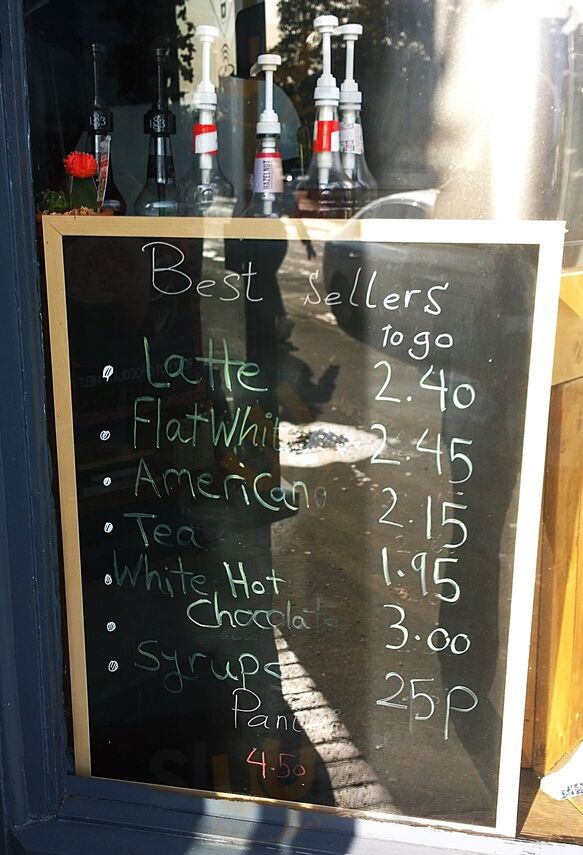 HAZELNUT
Best Sellers
To go
Latte 2.40
Flat White 2.45
Americano 2.15
Tea 1.95
White Hot
Chocolate 3.00
Syrups 25p
4.50